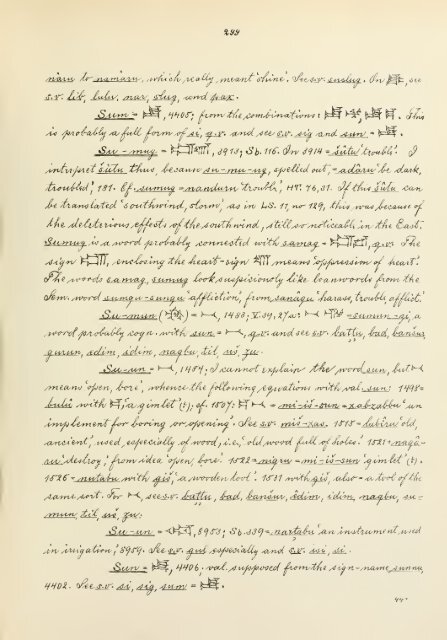 299
nâru to namâru, which really meant 'shine'. See s.v. enslug. On see
s.v. lib, lulu, nar, slug, and pax.
Sum = 4405; from the combinations: This
is probably a full form of si, q.v. and see s.v. sig and sun =
Su-mug = 8973; Sb. 116. In 8974 = šûtu 'trouble'. I
intrpret šûtu thus, because su-mu-ug, spelled out, = adâru 'be dark,
troubled', 181. Cf. sumug = manduru 'trouble', HT. 76, 31. If this šûtu can
be translated 'southwind, storm', as in LS. 11, no 129, this was because of
the deleterious effects of the southwind, still so noticeable in the East.
Sumug is a word probably connected with samag = q.v. The
sign enclosing the heart-sign means 'oppression of heart'.
The words samag, sumug look suspiciously like loanwords from the
Sem. word sunqu-sunqu 'affliction', from sanâqu 'harass, trouble, afflict'.
Su-mun = 1450; V. 39, 27a: = sumun-gi, a
word probably cogn. with sun = q.v. and see s.v. battu, bad, banšur
gurun, edin, idim, nagbu, til, uš, zu.
Su-un = 1484; I cannot explain the word sun, but
means 'open, bore', whence the following equations with val. sun: 1498 =
bulû with 'a gimlet' (?); cf. 1507: = mi-iš-sun = zabzabbu 'an
implement for boring or opening'. See s.v. 1515 = labiru 'old,
ancient', used especially of wood, i.e., 'old wood full of holes'. 1521 = nagâ-
ru 'destroy', from idea 'open, bore'. 1522 = niqru = mi-iš-sun 'gimlet' (?).
1526 = nutabu with giš, 'a wooden tool'. 1531 with giš, also = a tool of the
same sort. For see s.v. battu, bad, banšur, êdin, idim, nagbu, su-
mun, til, uš, zu.
Su-un = 8953; Sb. 339 = nartabu 'an instrument used
in irrigation', 8954. See s.v. gud especially and s.v. si.
Sun = 4406. val. supposed from the sign-name sunnu,
4402. See s.v. si, sig, sum =